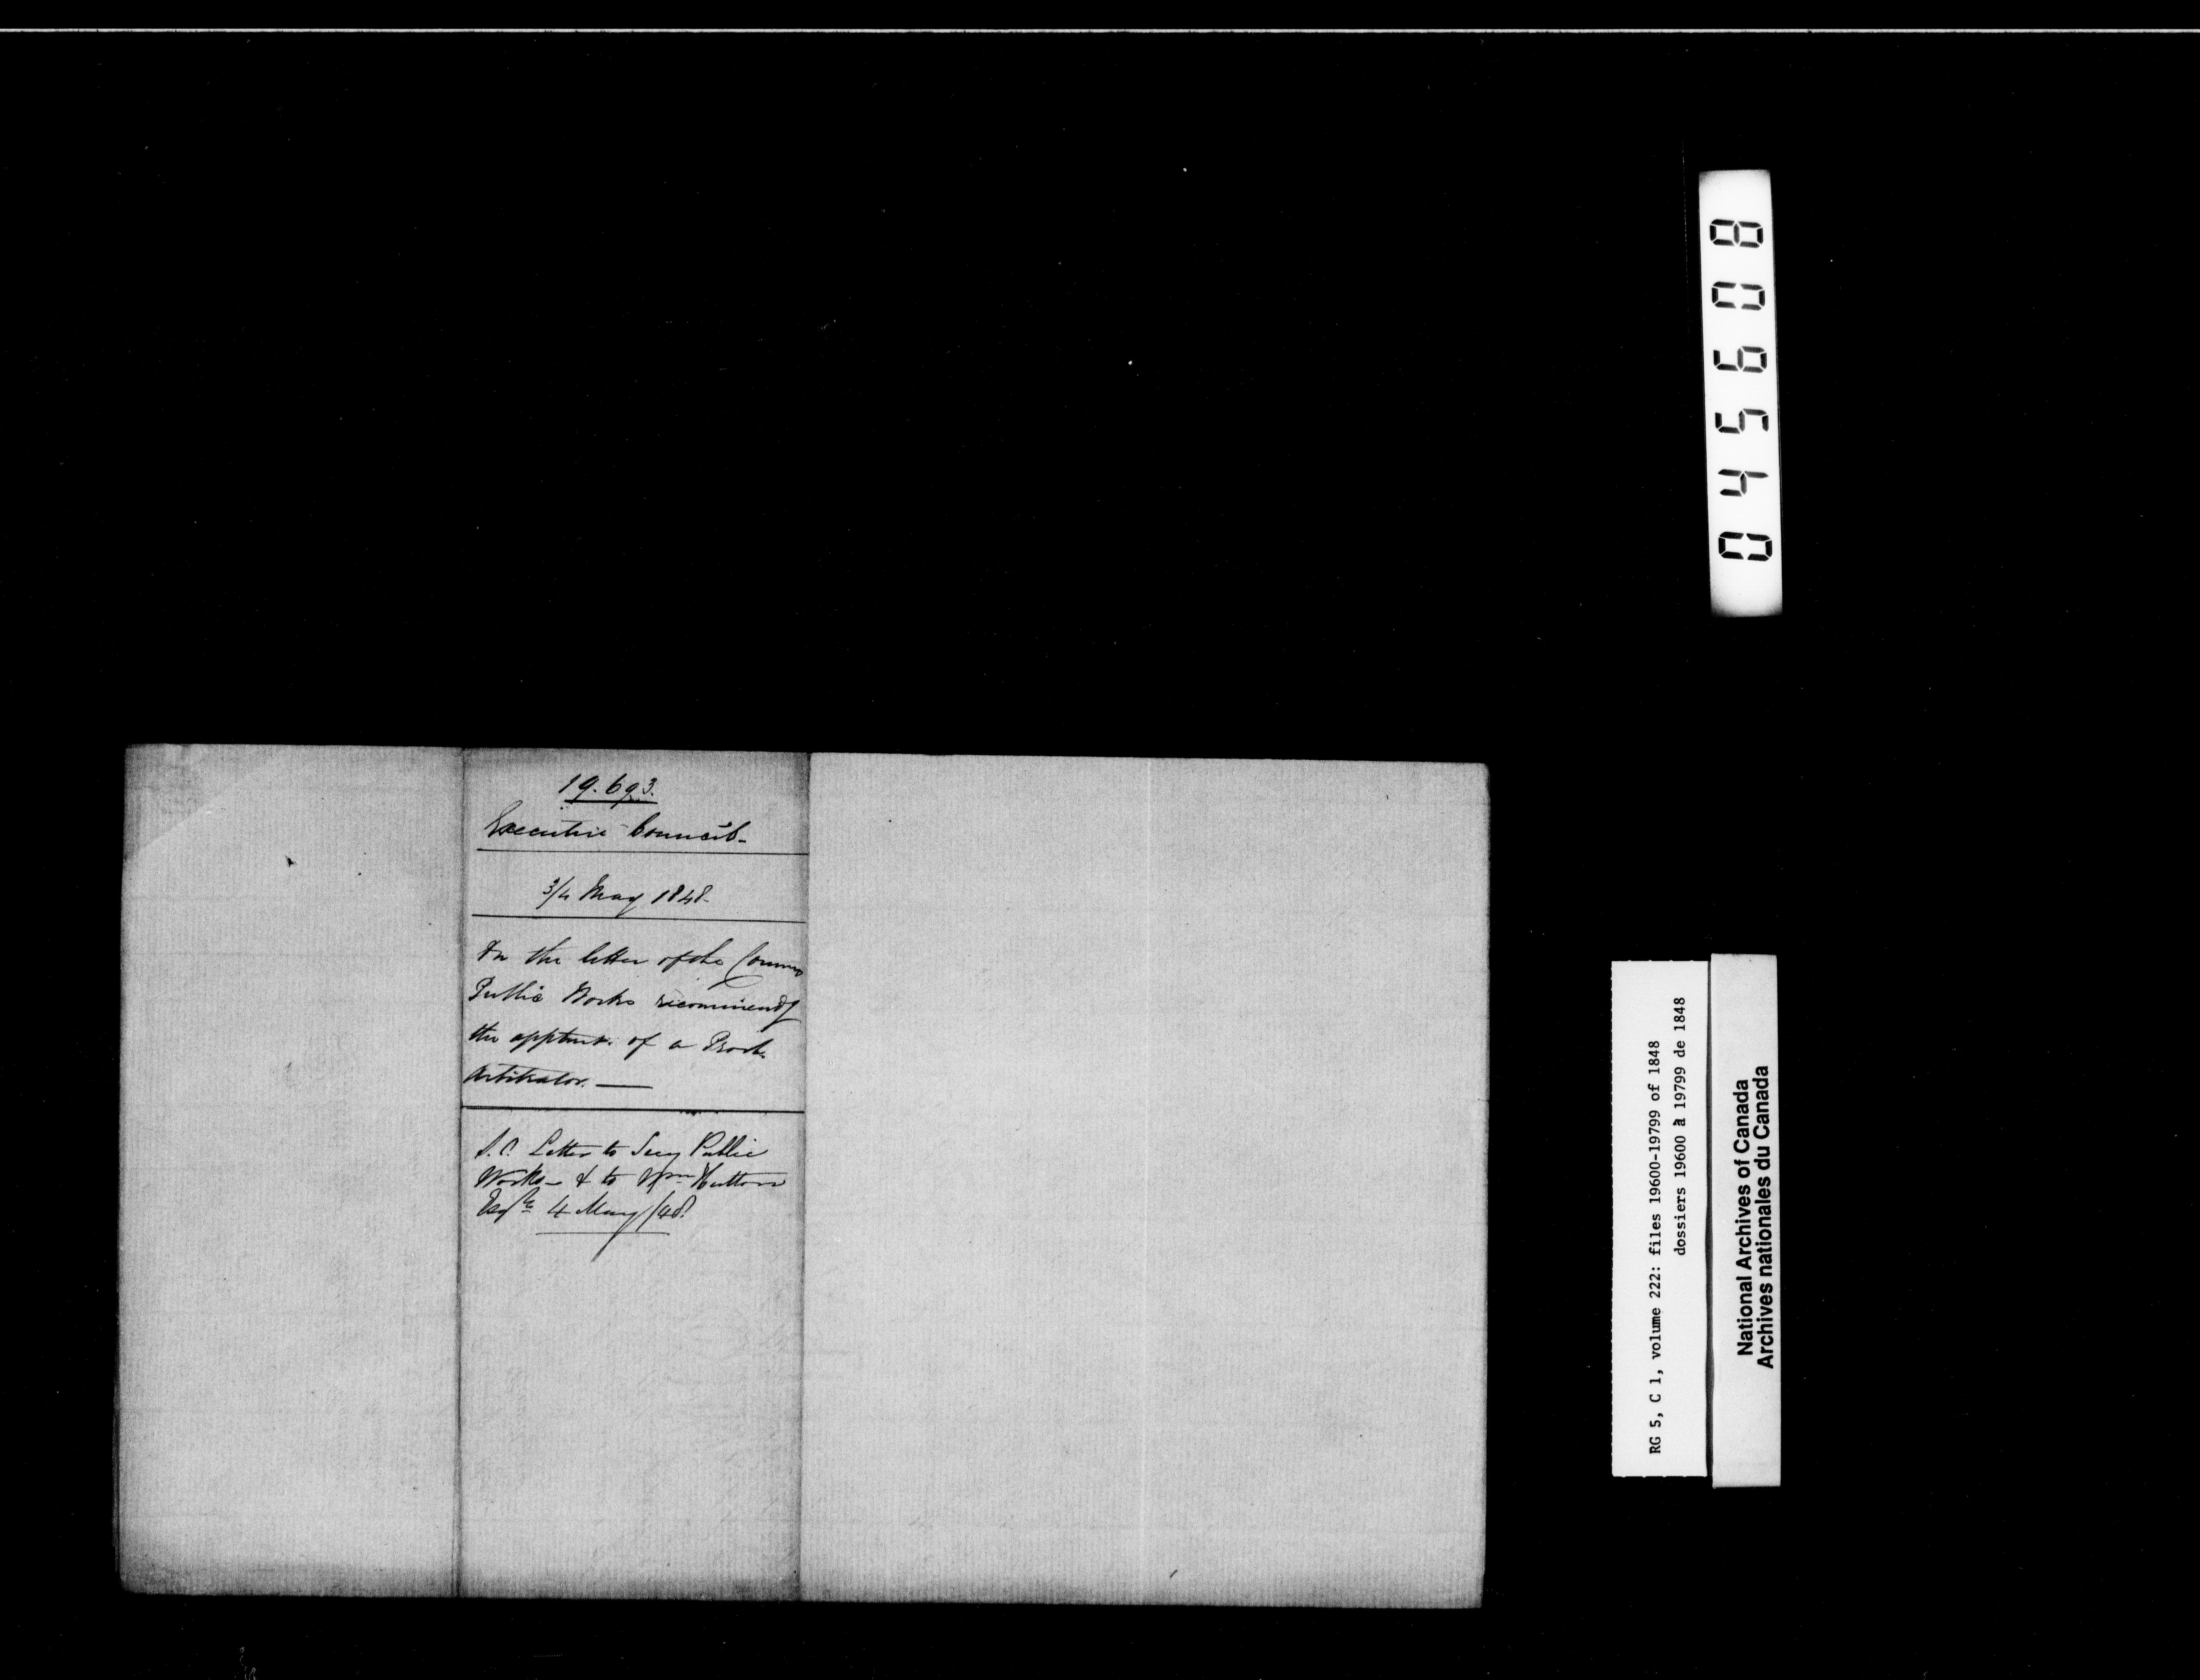 19.693.
Executive Council.
3/4 May 1848.
On the letter of the Commrs
Public Works recommendg
the apptmt. of a Provl.
Arbitrator. —
S.C. Letter to Secy Public
Works — & to Wm Hutton
Esqre 4 May /48.
045608
RG 5, C 1, volume 222: files 19600-19799 of 1848
dossiers 19600 à 19799 de 1848
National Archives of Canada
Archives nationales du Canada